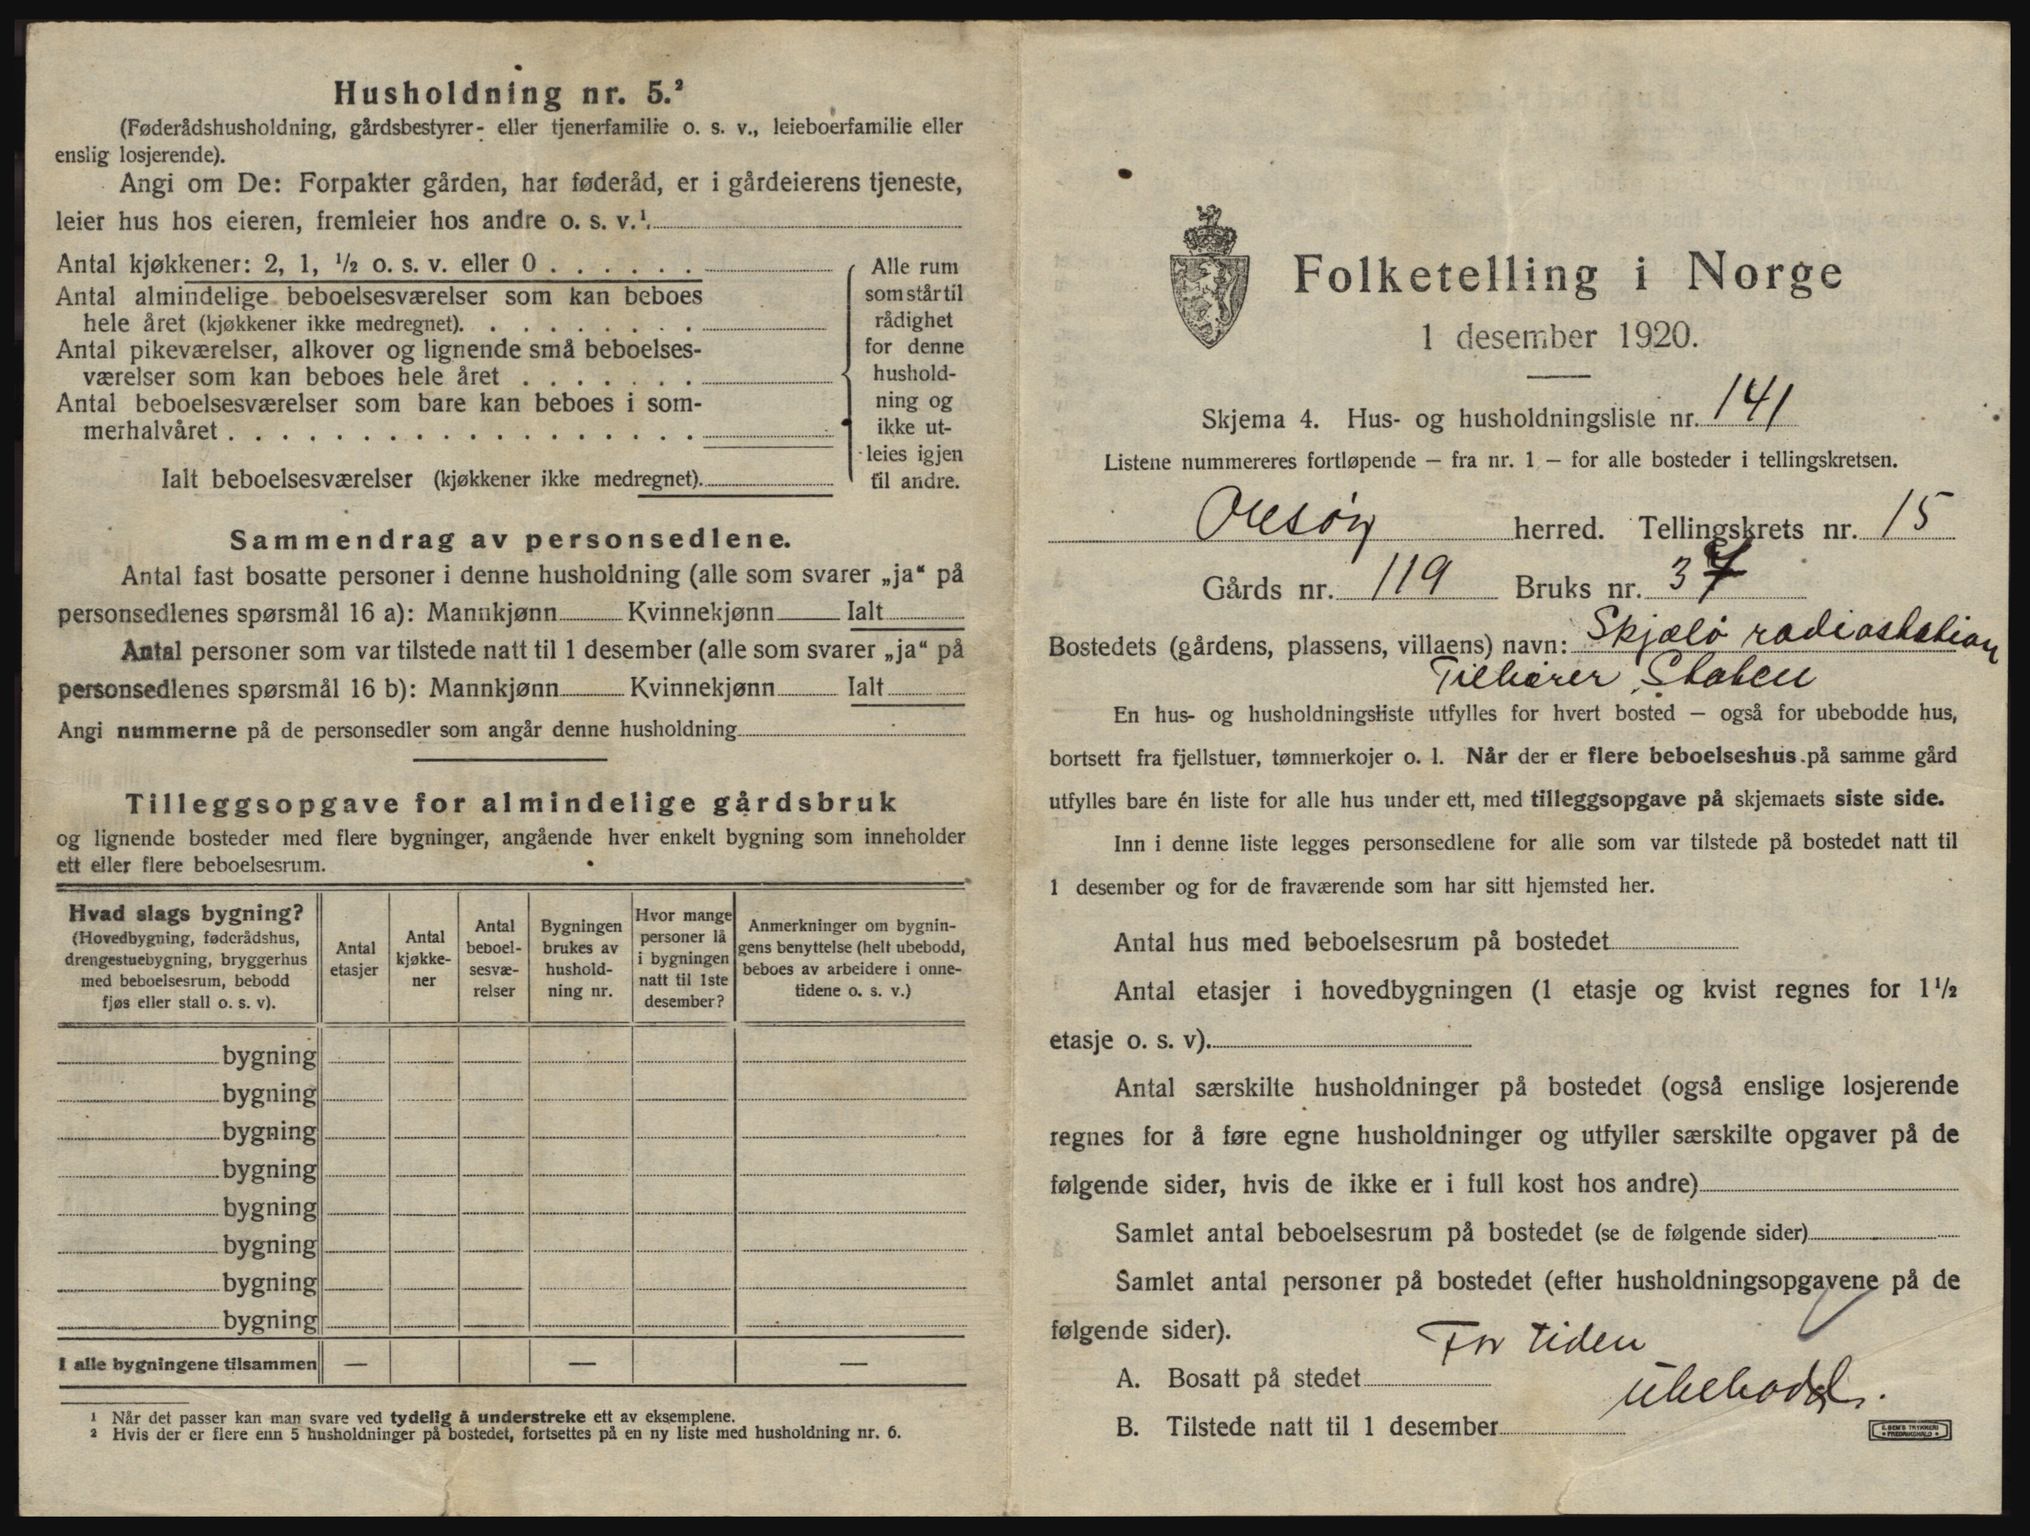 Husholdning nr. 5.²
(Føderådshusholdning, gårdsbestyrer- eller tjenerfamilie o. s. v., leieboerfamilie eller
enslig losjerende).
Angi om De: Forpakter gården, har føderåd, er i gårdeierens tjeneste,
leier hus hos eieren, fremleier hos andre o. s. v.¹.
Antal kjøkkener: 2, 1, ½ o. s. v. eller 0 . . . . . .
Antal almindelige beboelsesværelser som kan beboes
hele året (kjøkkener ikke medregnet). . . . . . . . .
Antal pikeværelser, alkover og lignende små beboelses-
værelser som kan beboes hele året . . . . . . .
Antal beboelsesværelser som bare kan beboes i som-
merhalvåret . . . . . . . . . . . . . . . . . .
Ialt beboelsesværelser (kjøkkener ikke medregnet).
Alle rum
som står til
rådighet
for denne
hushold-
ning og
ikke ut-
leies igjen
til andre.
Sammendrag av personsedlene.
Antal fast bosatte personer i denne husholdning (alle som svarer „ja“ på
personsedlenes spørsmål 16 a): Mannkjønn Kvinnekjønn Ialt
Antal personer som var tilstede natt til 1 desember (alle som svarer „ja“ på
personsedlenes spørsmål 16 b): Mannkjønn Kvinnekjønn Ialt
Angi nummerne på de personsedler som angår denne husholdning
Tilleggsopgave for almindelige gårdsbruk
og lignende bosteder med flere bygninger, angående hver enkelt bygning som inneholder
ett eller flere beboelsesrum.
Hvad slags bygning?
(Hovedbygning, føderådshus,
drengestuebygning, bryggerhus
med beboelsesrum, bebodd
fjøs eller stall o. s. v).
Antal
etasjer
Antal
kjøkke-
ner
Antal
beboel-
sesvæ-
relser
Bygningen
brukes av
hushold-
ning nr.
Hvor mange
personer lå
i bygningen
natt til 1ste
desember?
Anmerkninger om bygnin-
gens benyttelse (helt ubebodd,
beboes av arbeidere i onne-
tidene o. s. v.)
bygning
bygning
bygning
bygning
bygning
bygning
bygning
bygning
I alle bygningene tilsammen — — —
¹ Når det passer kan man svare ved tydelig å understreke ett av eksemplene.
² Hvis der er flere enn 5 husholdninger på bostedet, fortsettes på en ny liste med husholdning nr. 6.
Folketelling i Norge
1 desember 1920.
Skjema 4. Hus- og husholdningsliste nr. 141
Listene nummereres fortløpende — fra nr. 1 — for alle bosteder i tellingskretsen.
Onsøy herred. Tellingskrets nr. 15
Gårds nr. 119 Bruks nr. 37
Bostedets (gårdens, plassens, villaens) navn: Skjælø radiostation
Tilhører Staten
En hus- og husholdningsliste utfylles for hvert bosted — også for ubebodde hus,
bortsett fra fjellstuer, tømmerkojer o. l. Når der er flere beboelseshus på samme gård
utfylles bare én liste for alle hus under ett, med tilleggsopgave på skjemaets siste side.
Inn i denne liste legges personsedlene for alle som var tilstede på bostedet natt til
1 desember og for de fraværende som har sitt hjemsted her.
Antal hus med beboelsesrum på bostedet
Antal etasjer i hovedbygningen (1 etasje og kvist regnes for 1½
etasje o. s. v).
Antal særskilte husholdninger på bostedet (også enslige losjerende
regnes for å føre egne husholdninger og utfyller særskilte opgaver på de
følgende sider, hvis de ikke er i full kost hos andre)
Samlet antal beboelsesrum på bostedet (se de følgende sider)
Samlet antal personer på bostedet (efter husholdningsopgavene på de
følgende sider).
For tiden
A. Bosatt på stedet
ubebodd.
B. Tilstede natt til 1 desember